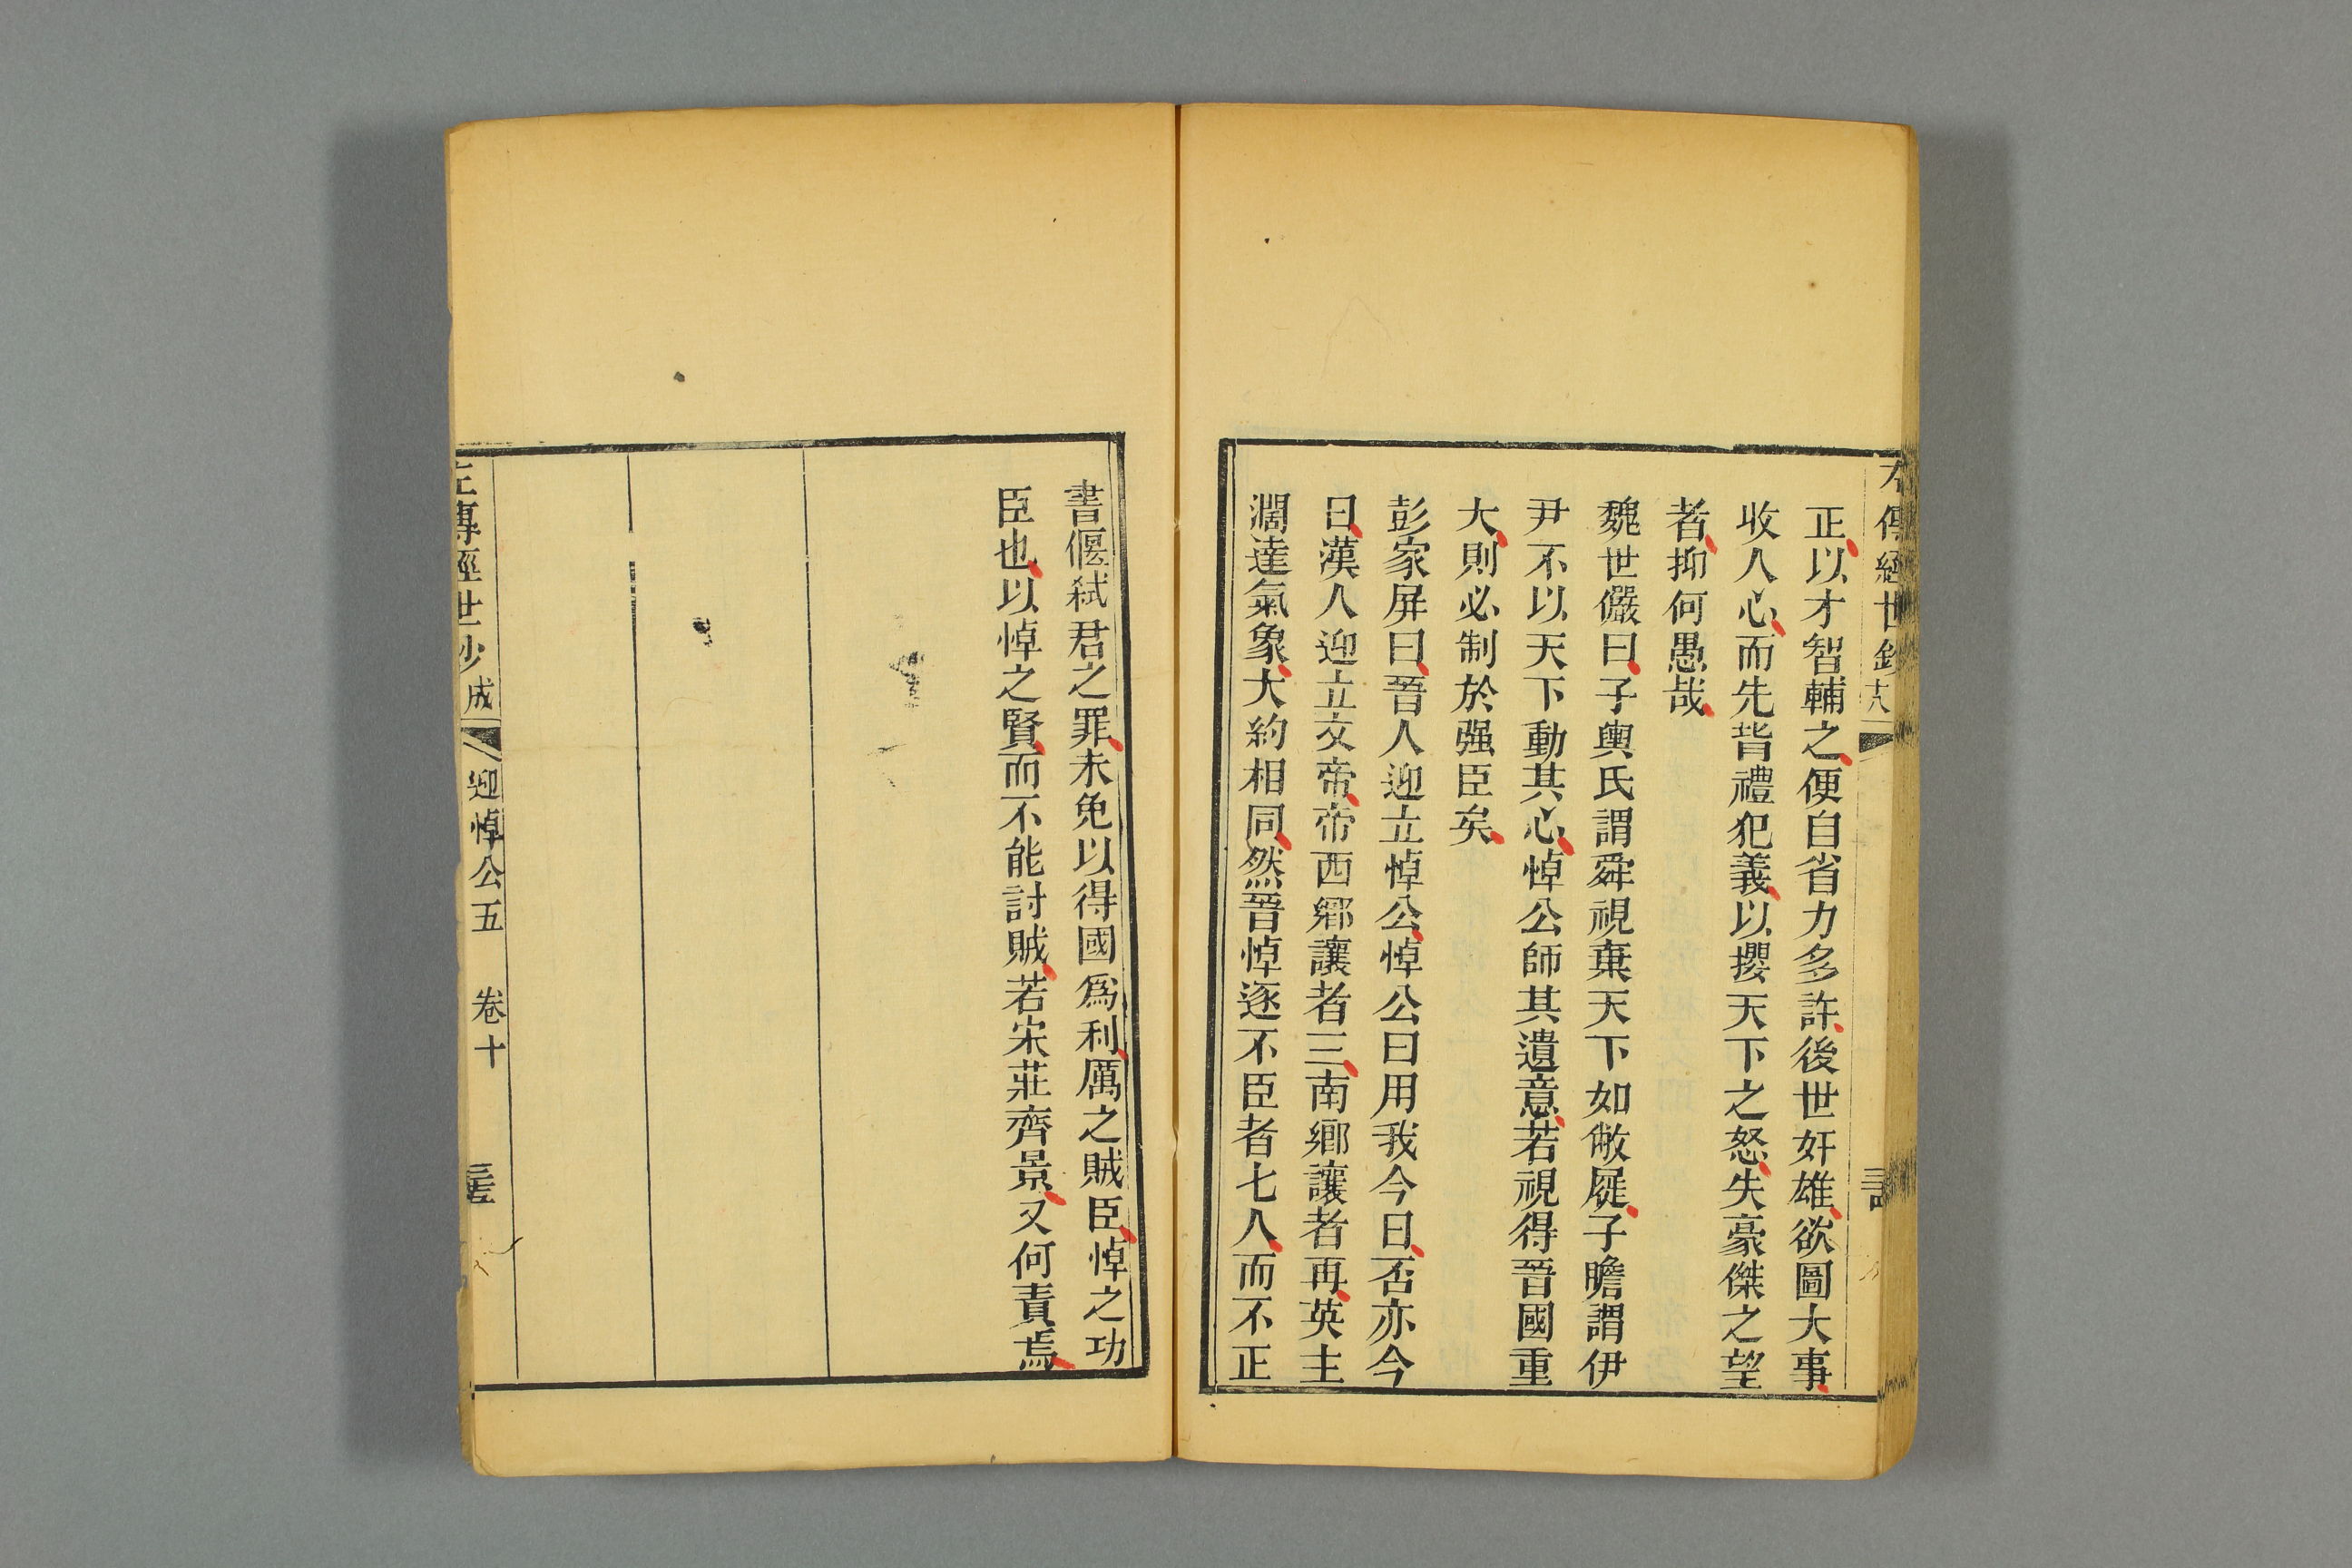 正以才智輔之便自省力多許後世奸雄欲圖大事
收人心而先背禮犯義以攖天下之怒失豪傑之望
者抑何愚哉
魏世儼曰子輿氏謂舜視棄天下如敝屣子瞻謂伊
尹不以天下動其心悼公師其遺意若視得晉國重
大則必制於强臣矣
彭家屏曰晉人迎立悼公悼公曰用我今日否亦今
日漢人迎立文帝帝西鄉讓者三南鄉讓者再英主
濶達氣象大約相同然晉悼逐不臣者七人而不正
書偃弒君之罪未免以得國爲利厲之賊臣悼之功
臣也以悼之賢而不能討賊若宋莊齊景又何責焉
左傳經世鈔成 迎悼公五 卷十